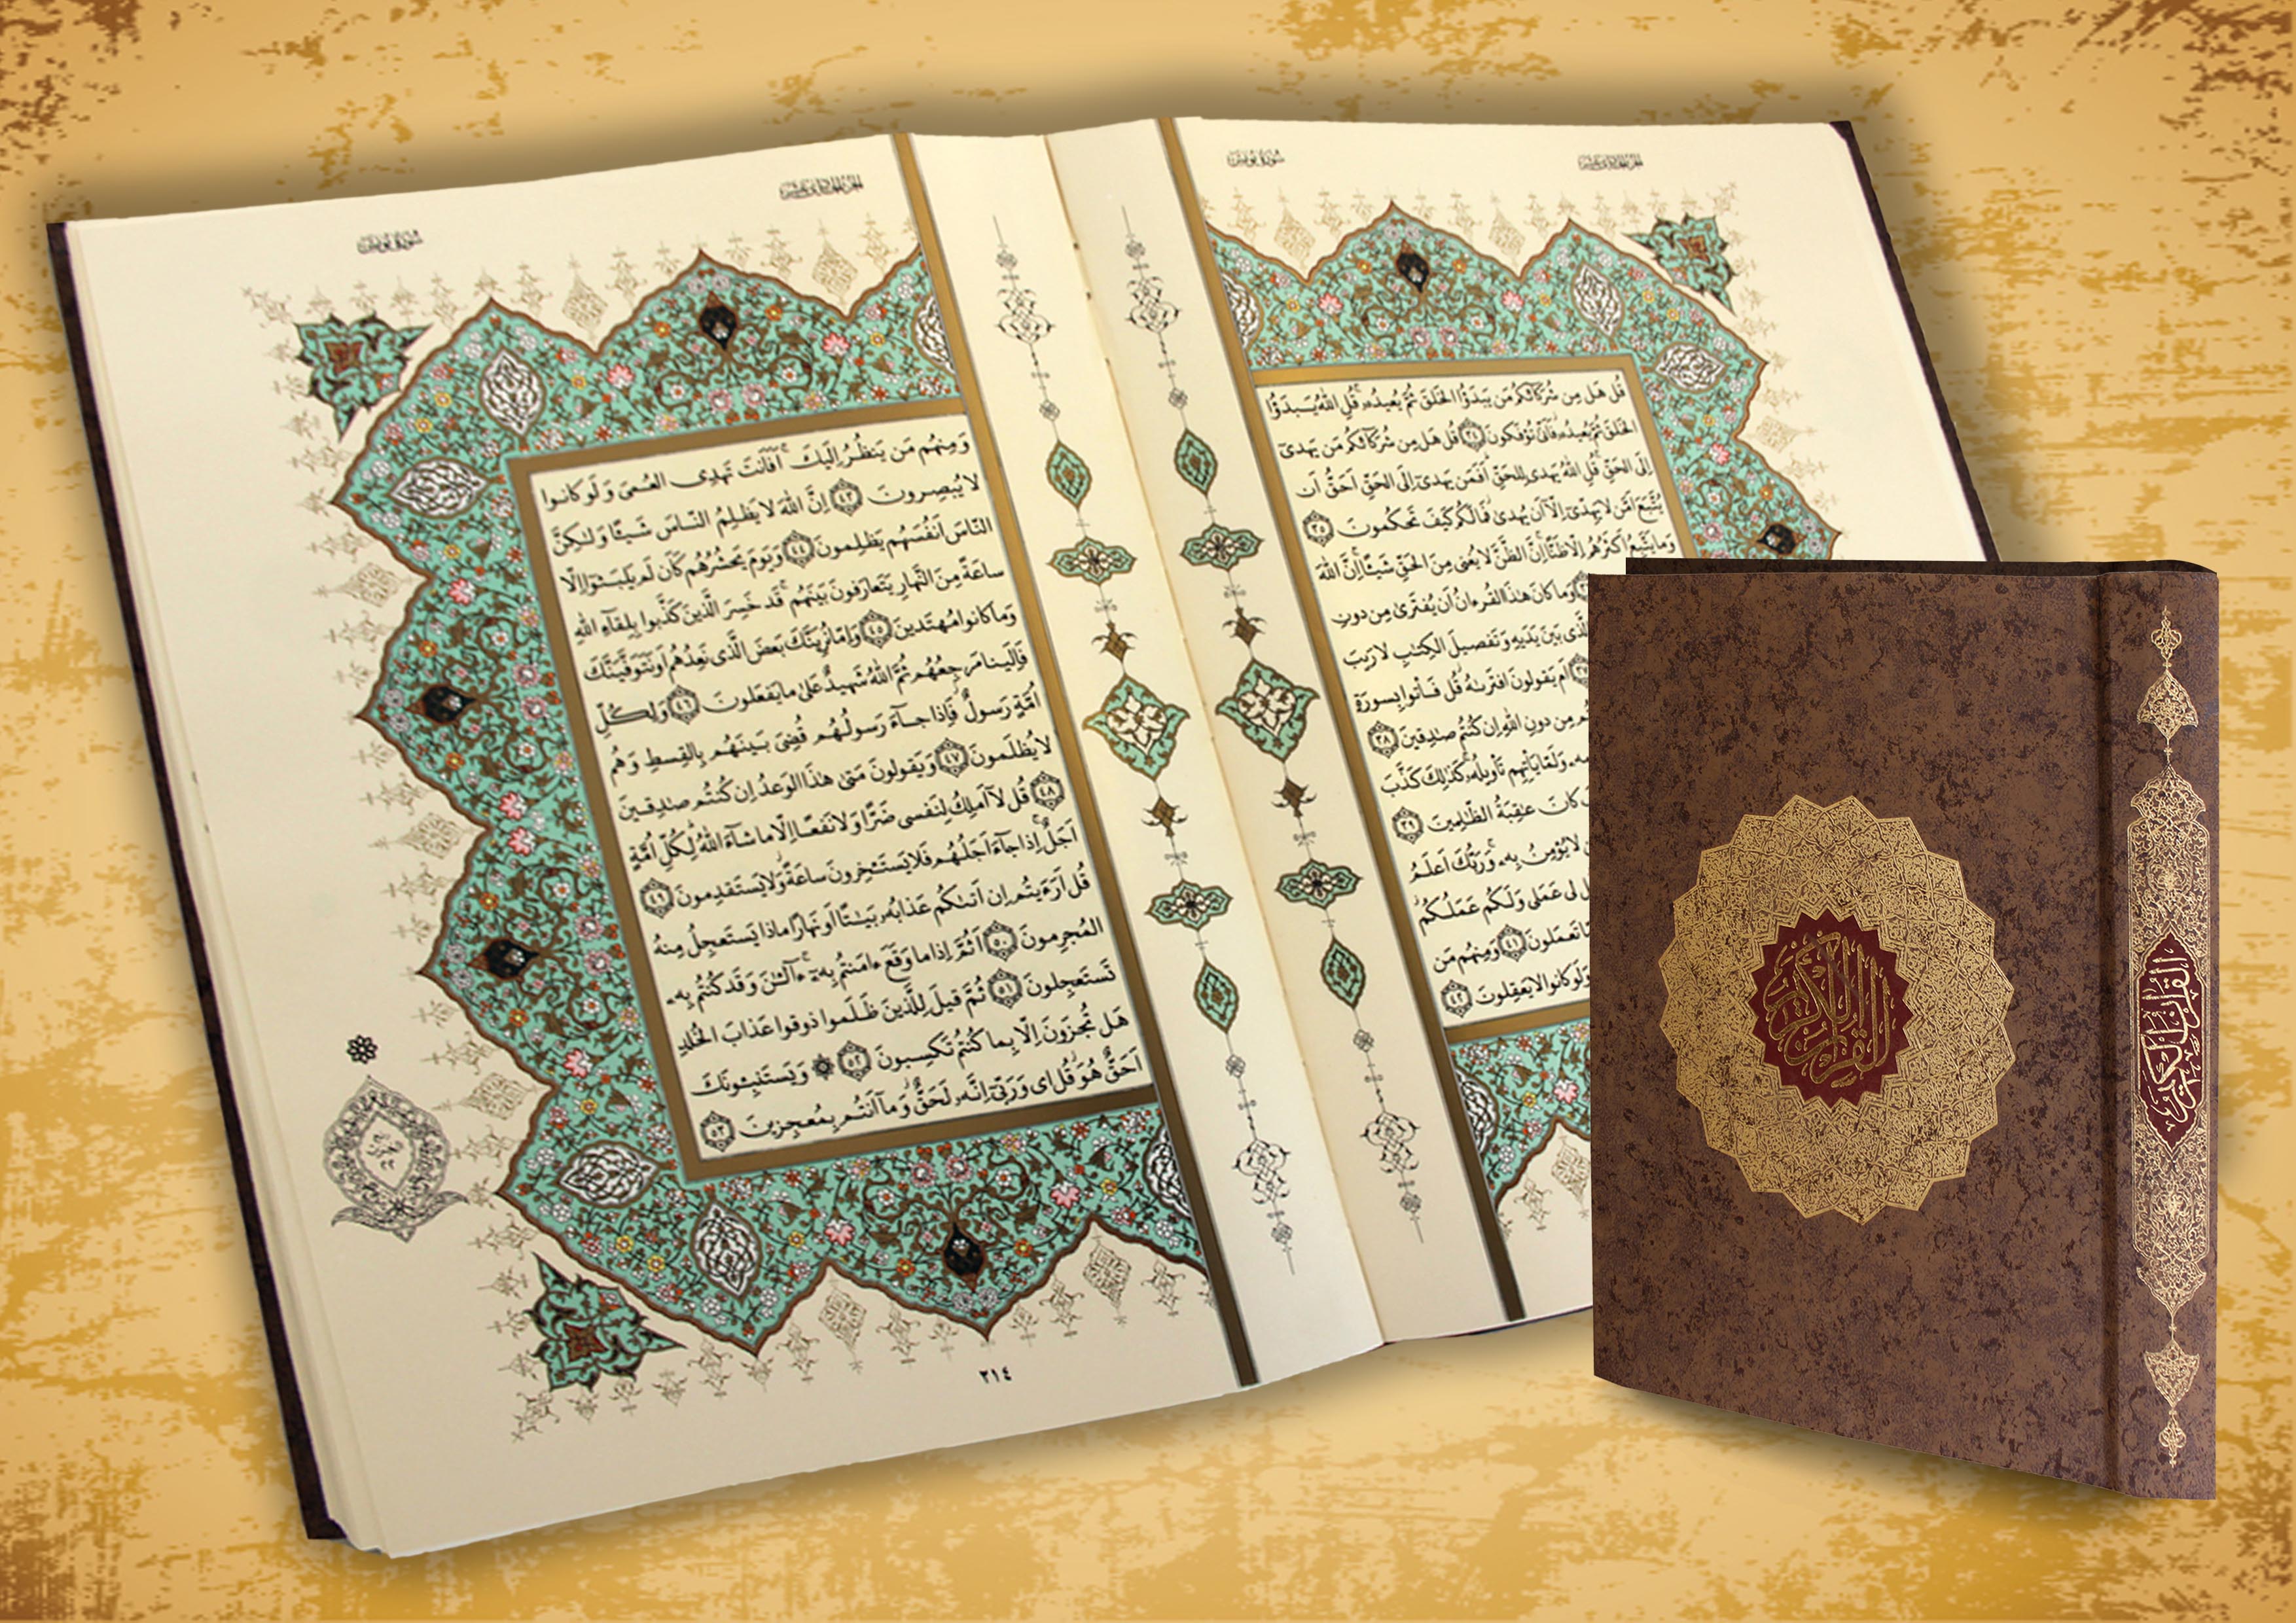 سورة يونس
الجزء الحادي عشر
قُل هَل مِن شُرَكَائِكُم مَن يَبدَؤُا الخَلقَ ثُمَّ يُعيدُهُ قُلِ اللّٰهُ يَبدَؤُا
الخَلقَ ثُمَّ يُعيدُهُ فَاَنّىٰ تُؤفَكونَ ٣٤ قُل هَل مِن شُرَكَائِكُم مَن يَهدى
اِلَى الحَقِّ قُلِ اللّٰهُ يَهدى لِلحَقِّ اَفَمَن يَهدى اِلَى الحَقِّ اَحَقُّ اَن
يُتَّبَعَ اَمَّن لا يَهِدّى اِلّا اَن يُهدىٰ فَما لَكُم كَيفَ تَحكُمونَ ٣٥
وَما يَتَّبِعُ اَكثَرُهُم اِلّا ظَنًّا اِنَّ الظَّنَّ لا يُغنى مِنَ الحَقِّ شَيئًا اِنَّ اللّٰهَ
وَما كانَ هٰذَا القُرءانُ اَن يُفتَرىٰ مِن دونِ
الَّذى بَينَ يَدَيهِ وَتَفصيلَ الكِتٰبِ لا رَيبَ
اَم يَقولونَ افتَرىٰهُ قُل فَأتوا بِسورَةٍ
مِن دونِ اللّٰهِ اِن كُنتُم صٰدِقينَ ٣٨
وَلَمّا يَأتِهِم تَأويلُهُ كَذٰلِكَ كَذَّبَ
كانَ عٰقِبَةُ الظّٰلِمينَ ٣٩
لا يُؤمِنُ بِهِ وَرَبُّكَ اَعلَمُ
لى عَمَلى وَلَكُم عَمَلُكُم
تَعمَلونَ ٤١ وَمِنهُم مَن
وَلَو كانوا لا يَعقِلونَ ٤٢
الجزء الحادي عشر
سورة يونس
وَمِنهُم مَن يَنظُرُ اِلَيكَ اَفَاَنتَ تَهدِى العُمىَ وَلَو كانوا
لا يُبصِرونَ ٤٣ اِنَّ اللّٰهَ لا يَظلِمُ النّاسَ شَيئًا وَلٰكِنَّ
النّاسَ اَنفُسَهُم يَظلِمونَ ٤٤ وَيَومَ يَحشُرُهُم كَاَن لَم يَلبَثوا اِلّا
ساعَةً مِنَ النَّهارِ يَتَعارَفونَ بَينَهُم قَد خَسِرَ الَّذينَ كَذَّبوا بِلِقاءِ اللّٰهِ
وَما كانوا مُهتَدينَ ٤٥ وَاِمّا نُرِيَنَّكَ بَعضَ الَّذى نَعِدُهُم اَو نَتَوَفَّيَنَّكَ
فَاِلَينا مَرجِعُهُم ثُمَّ اللّٰهُ شَهيدٌ عَلىٰ ما يَفعَلونَ ٤٦ وَلِكُلِّ
اُمَّةٍ رَسولٌ فَاِذا جاءَ رَسولُهُم قُضِىَ بَينَهُم بِالقِسطِ وَهُم
لا يُظلَمونَ ٤٧ وَيَقولونَ مَتىٰ هٰذَا الوَعدُ اِن كُنتُم صٰدِقينَ
٤٨ قُل لا اَملِكُ لِنَفسى ضَرًّا وَلا نَفعًا اِلّا ما شاءَ اللّٰهُ لِكُلِّ اُمَّةٍ
اَجَلٌ اِذا جاءَ اَجَلُهُم فَلا يَستَـٔخِرونَ ساعَةً وَلا يَستَقدِمونَ ٤٩
قُل اَرَءَيتُم اِن اَتىٰكُم عَذابُهُ بَيٰتًا اَو نَهارًا ماذا يَستَعجِلُ مِنهُ
المُجرِمونَ ٥٠ اَثُمَّ اِذا ما وَقَعَ ءامَنتُم بِهِ ءآلـٰٔنَ وَقَد كُنتُم بِهِ
تَستَعجِلونَ ٥١ ثُمَّ قيلَ لِلَّذينَ ظَلَموا ذوقوا عَذابَ الخُلدِ
هَل تُجزَونَ اِلّا بِما كُنتُم تَكسِبونَ ٥٢ وَيَستَنبِـٔونَكَ
اَحَقٌّ هُوَ قُل اى وَرَبّى اِنَّهُ لَحَقٌّ وَما اَنتُم بِمُعجِزينَ ٥٣
٢١٤
القرآن الكريم
القرآن الكريم